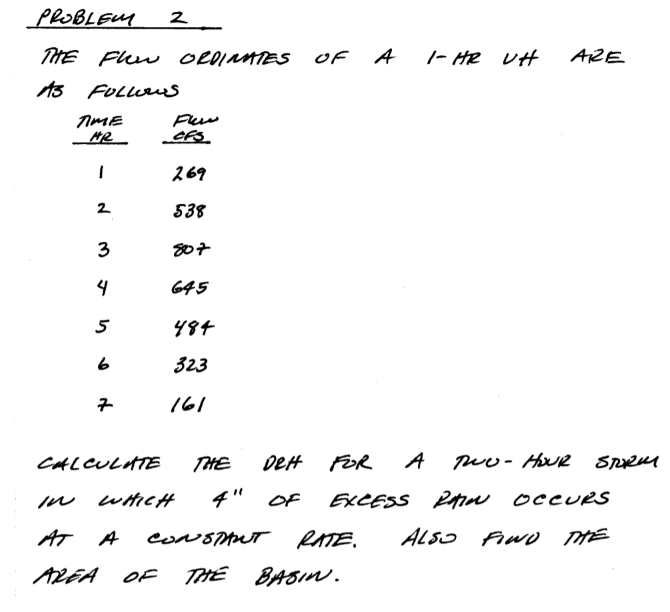 PROBLEM 2
THE FLOW ORDINATES OF A 1-HR UH ARE
AS FOLLOWS
TIME FLOW
HR CFS
1 269
2 538
3 807
4 645
5 484
6 323
7 161
CALCULATE THE DRH FOR A TWO-HOUR STORM
IN WHICH 4" OF EXCESS RAIN OCCURS
AT A CONSTANT RATE. ALSO FIND THE
AREA OF THE BASIN.